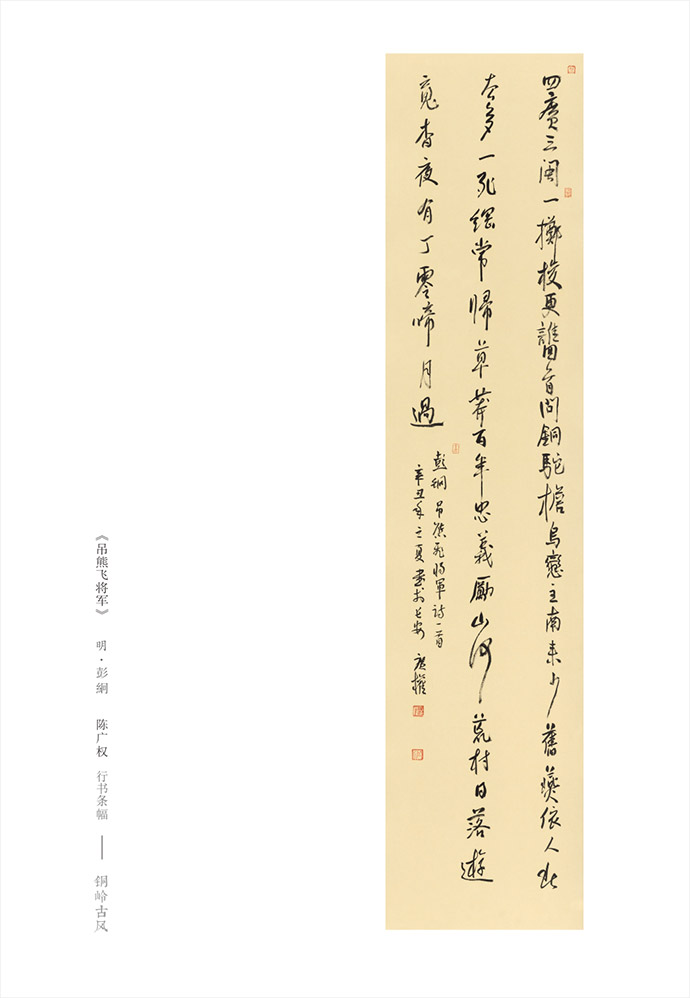 四廣三閩一擲梭更誰回首問銅駝檐烏戀主南來少舊燕依人北
去多一死綱常歸草莽百年忠義勵山河荒村日落遊
魂杳夜有丁零啼月過
彭綱吊熊飛將軍詩一首
辛丑年之夏書於長安 廣權
《吊熊飞将军》 明·彭綱 陈广权 行书条幅 —— 铜岭古风